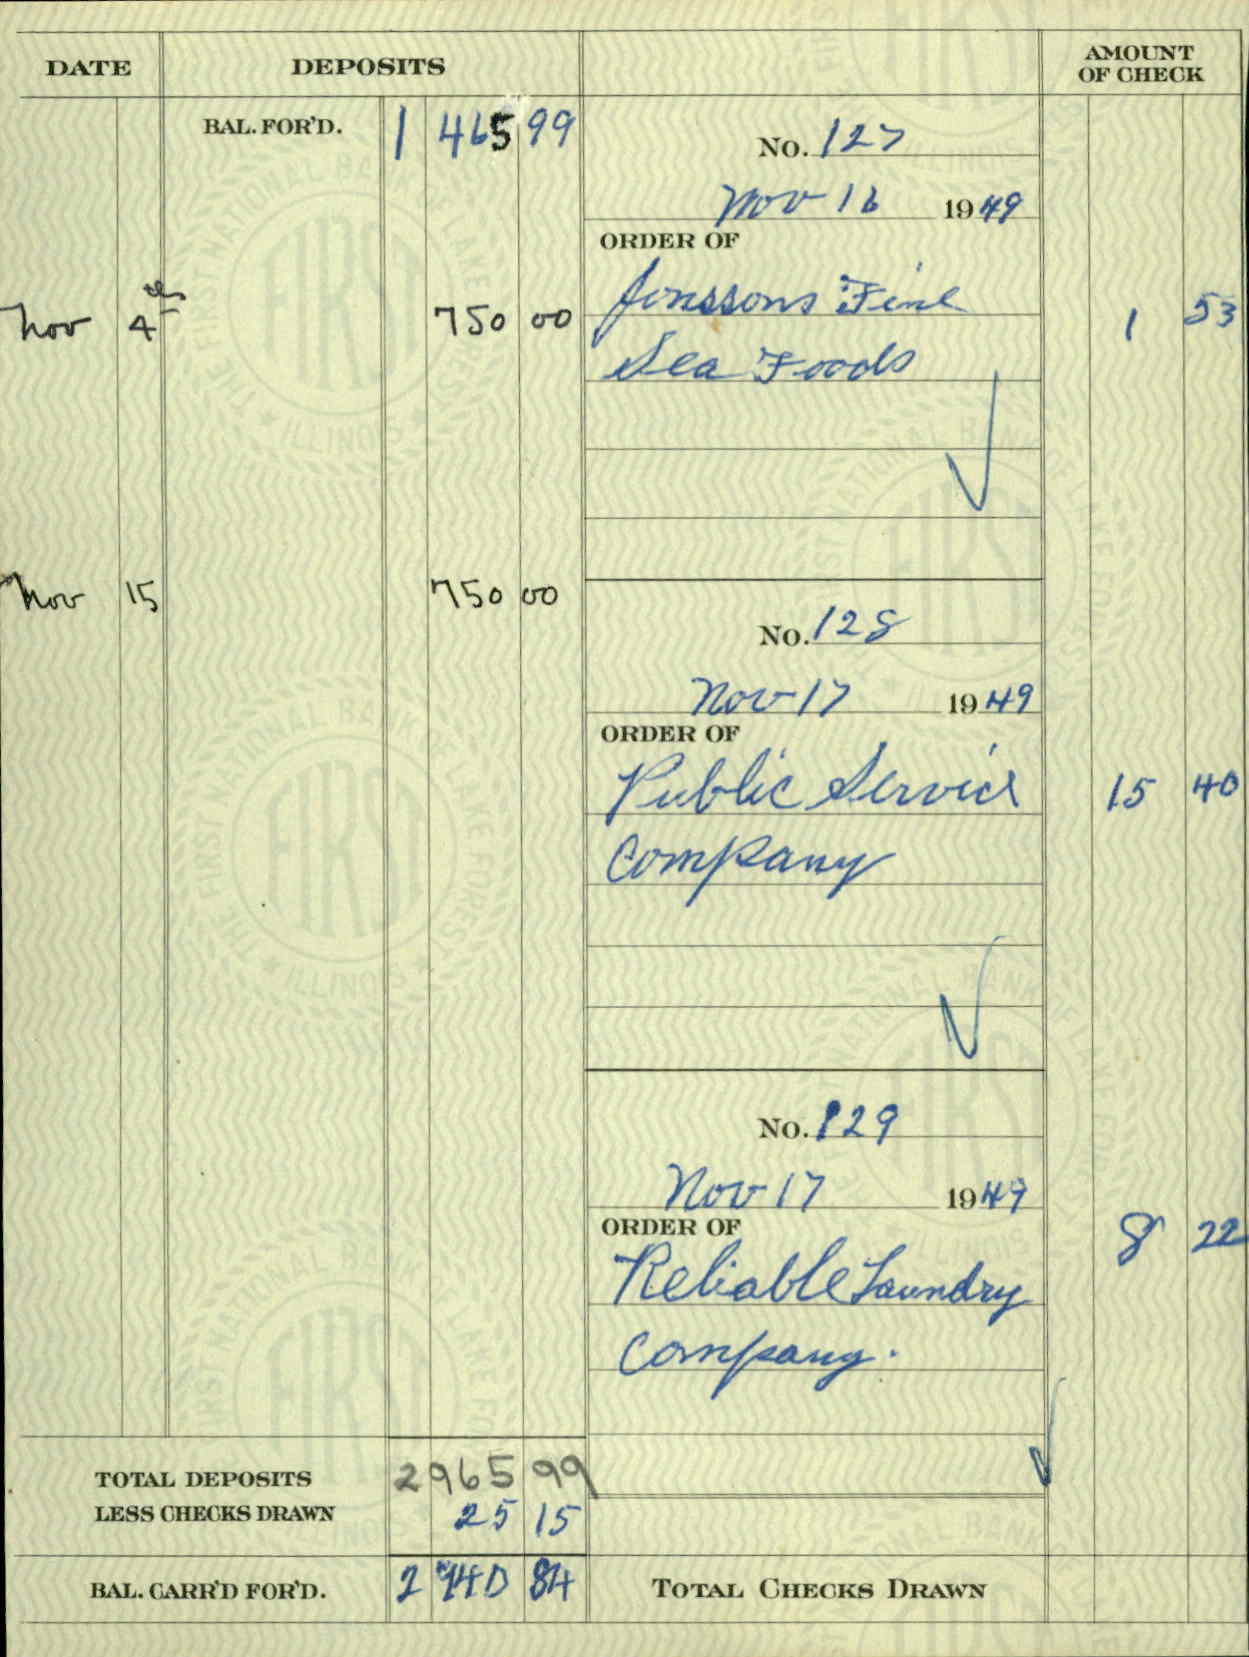 DATE DEPOSITS AMOUNT OF CHECK
BAL. FOR'D. 1 465 99
No. 127
Nov 16 1949
ORDER OF
Jonssons Fine 1 53
Nov 4th 750 00
Sea Foods
Nov 15 750 00
No. 128
Nov 17 1949
ORDER OF
Public Service 15 40
Company
No. 129
Nov 17 1949
ORDER OF
Reliable Laundry 8 22
Company.
TOTAL DEPOSITS 2965 99
LESS CHECKS DRAWN 25 15
BAL. CARR'D FOR'D. 2 940 84
TOTAL CHECKS DRAWN